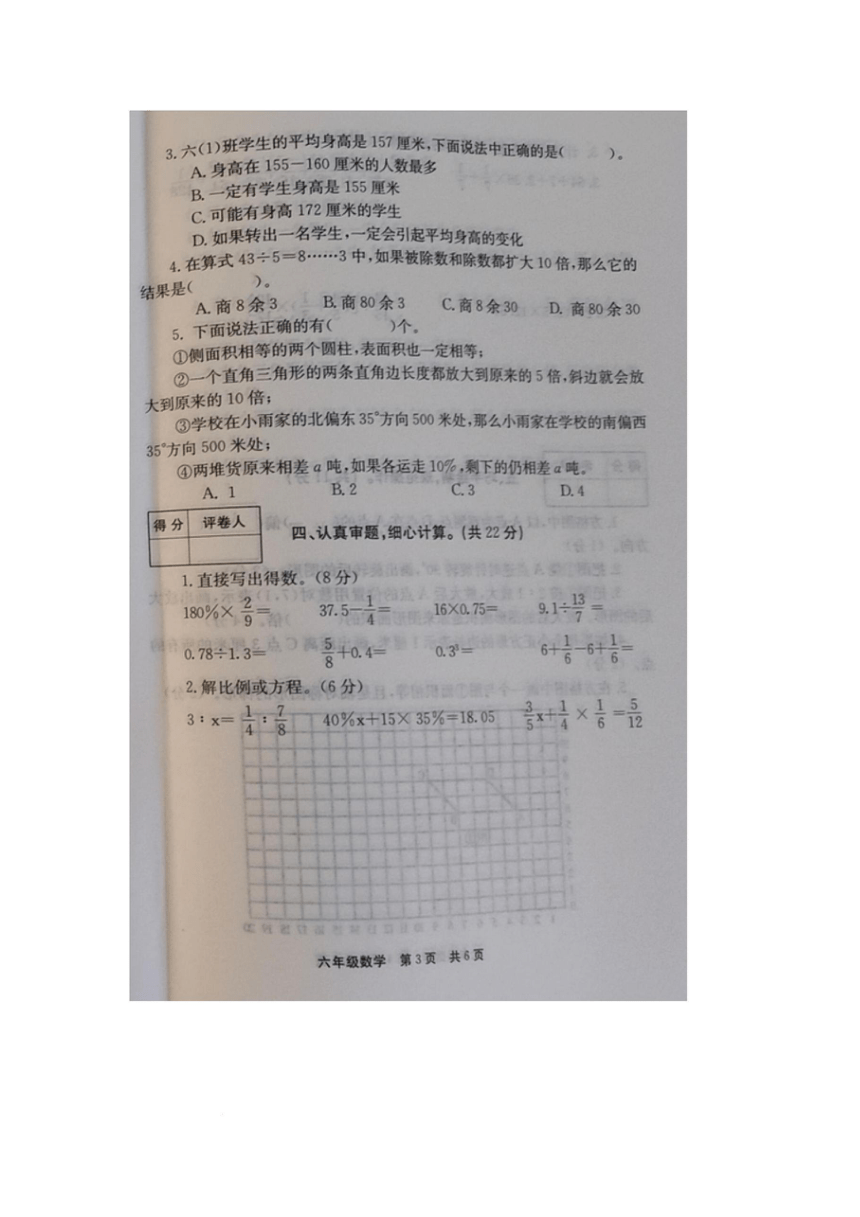 3.六(1)班学生的平均身高是157厘米,下面说法中正确的是(　　)。
A.身高在155－160厘米的人数最多
B.一定有学生身高是155厘米
C.可能有身高172厘米的学生
D.如果转出一名学生,一定会引起平均身高的变化
4.在算式43÷5=8……3中,如果被除数和除数都扩大10倍,那么它的
结果是(　　)。
A.商8余3　B.商80余3　C.商8余30　D.商80余30
5.下面说法正确的有(　　)个。
①侧面积相等的两个圆柱,表面积也一定相等;
②一个直角三角形的两条直角边长度都放大到原来的5倍,斜边就会放
大到原来的10倍;
③学校在小雨家的北偏东35°方向500米处,那么小雨家在学校的南偏西
35°方向500米处;
④两堆货原来相差a吨,如果各运走10%,剩下的仍相差a吨。
A.1　B.2　C.3　D.4
得分　评卷人
四、认真审题,细心计算。(共22分)
1.直接写出得数。(8分)
180%×2/9=　37.5−1/4=　16×0.75=　9.1÷13/7=
0.78÷1.3=　5/8+0.4=　0.3³=　6+1/6−6+1/6=
2.解比例或方程。(6分)
3:x=1/4:7/8　40%x+15×35%=18.05　3/5x+1/4×1/6=5/12
六年级数学　第3页　共6页